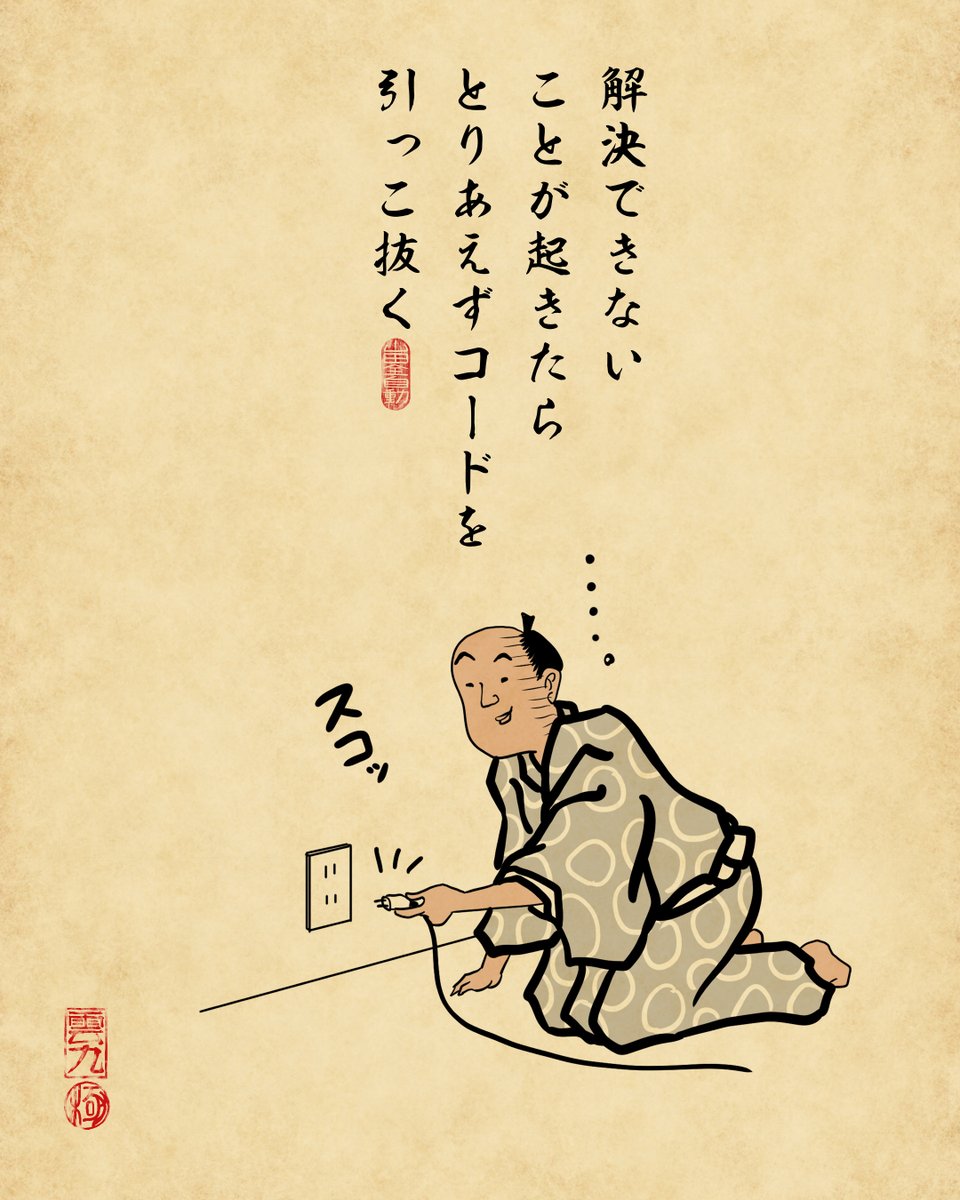 解決できない
ことが起きたら
とりあえずコードを
引っこ抜く
スコッ